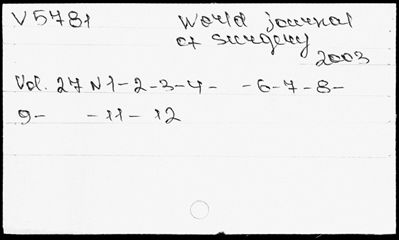 V5781 World journal
of surgery
2003
Vol. 27 N1-2-3-4- -6-7-8-
9- -11-12